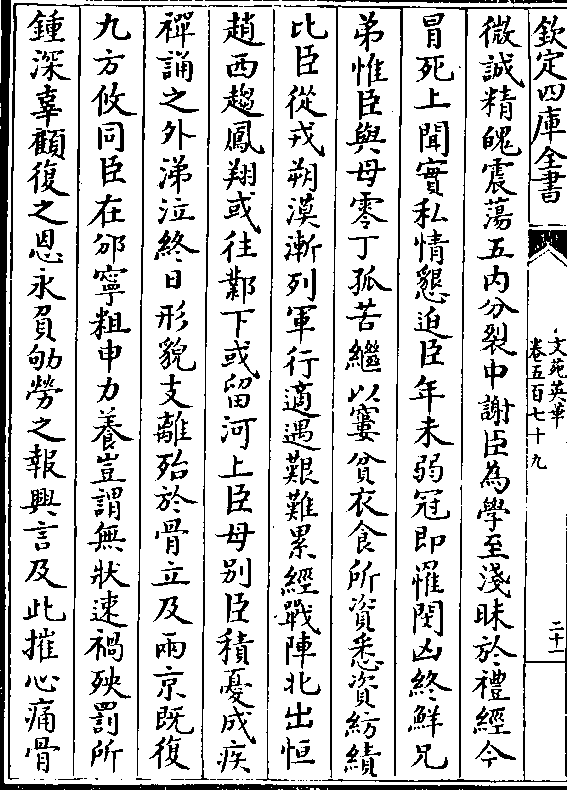 欽定四庫全書
文苑英華
卷五百七十九
二十一
微誠精魄震蕩五内分裂中謝臣為學至淺昧於禮經今
冒死上聞實私情懇迫臣年未弱冠即罹閔凶終鮮兄
弟惟臣與母零丁孤苦繼以窶貧衣食所資悉資紡績
比臣從戎朔漠漸列軍行適遇艱難累經戰陣北出恒
趙西趨鳳翔或往鄴下或留河上臣母别臣積憂成疾
禪誦之外涕泣終日形貌支離殆於骨立及兩京既復
九方攸同臣在邠寧粗申力養豈謂無狀速禍殃罰所
鍾深辜顧復之恩永負劬勞之報興言及此摧心痛骨